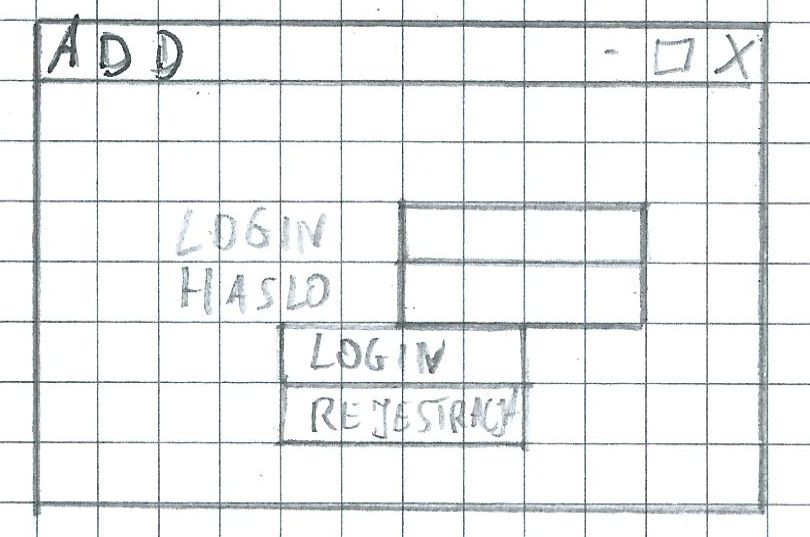 ADD - □ X
LOGIN
HASLO
LOGIN
REJESTRACJA